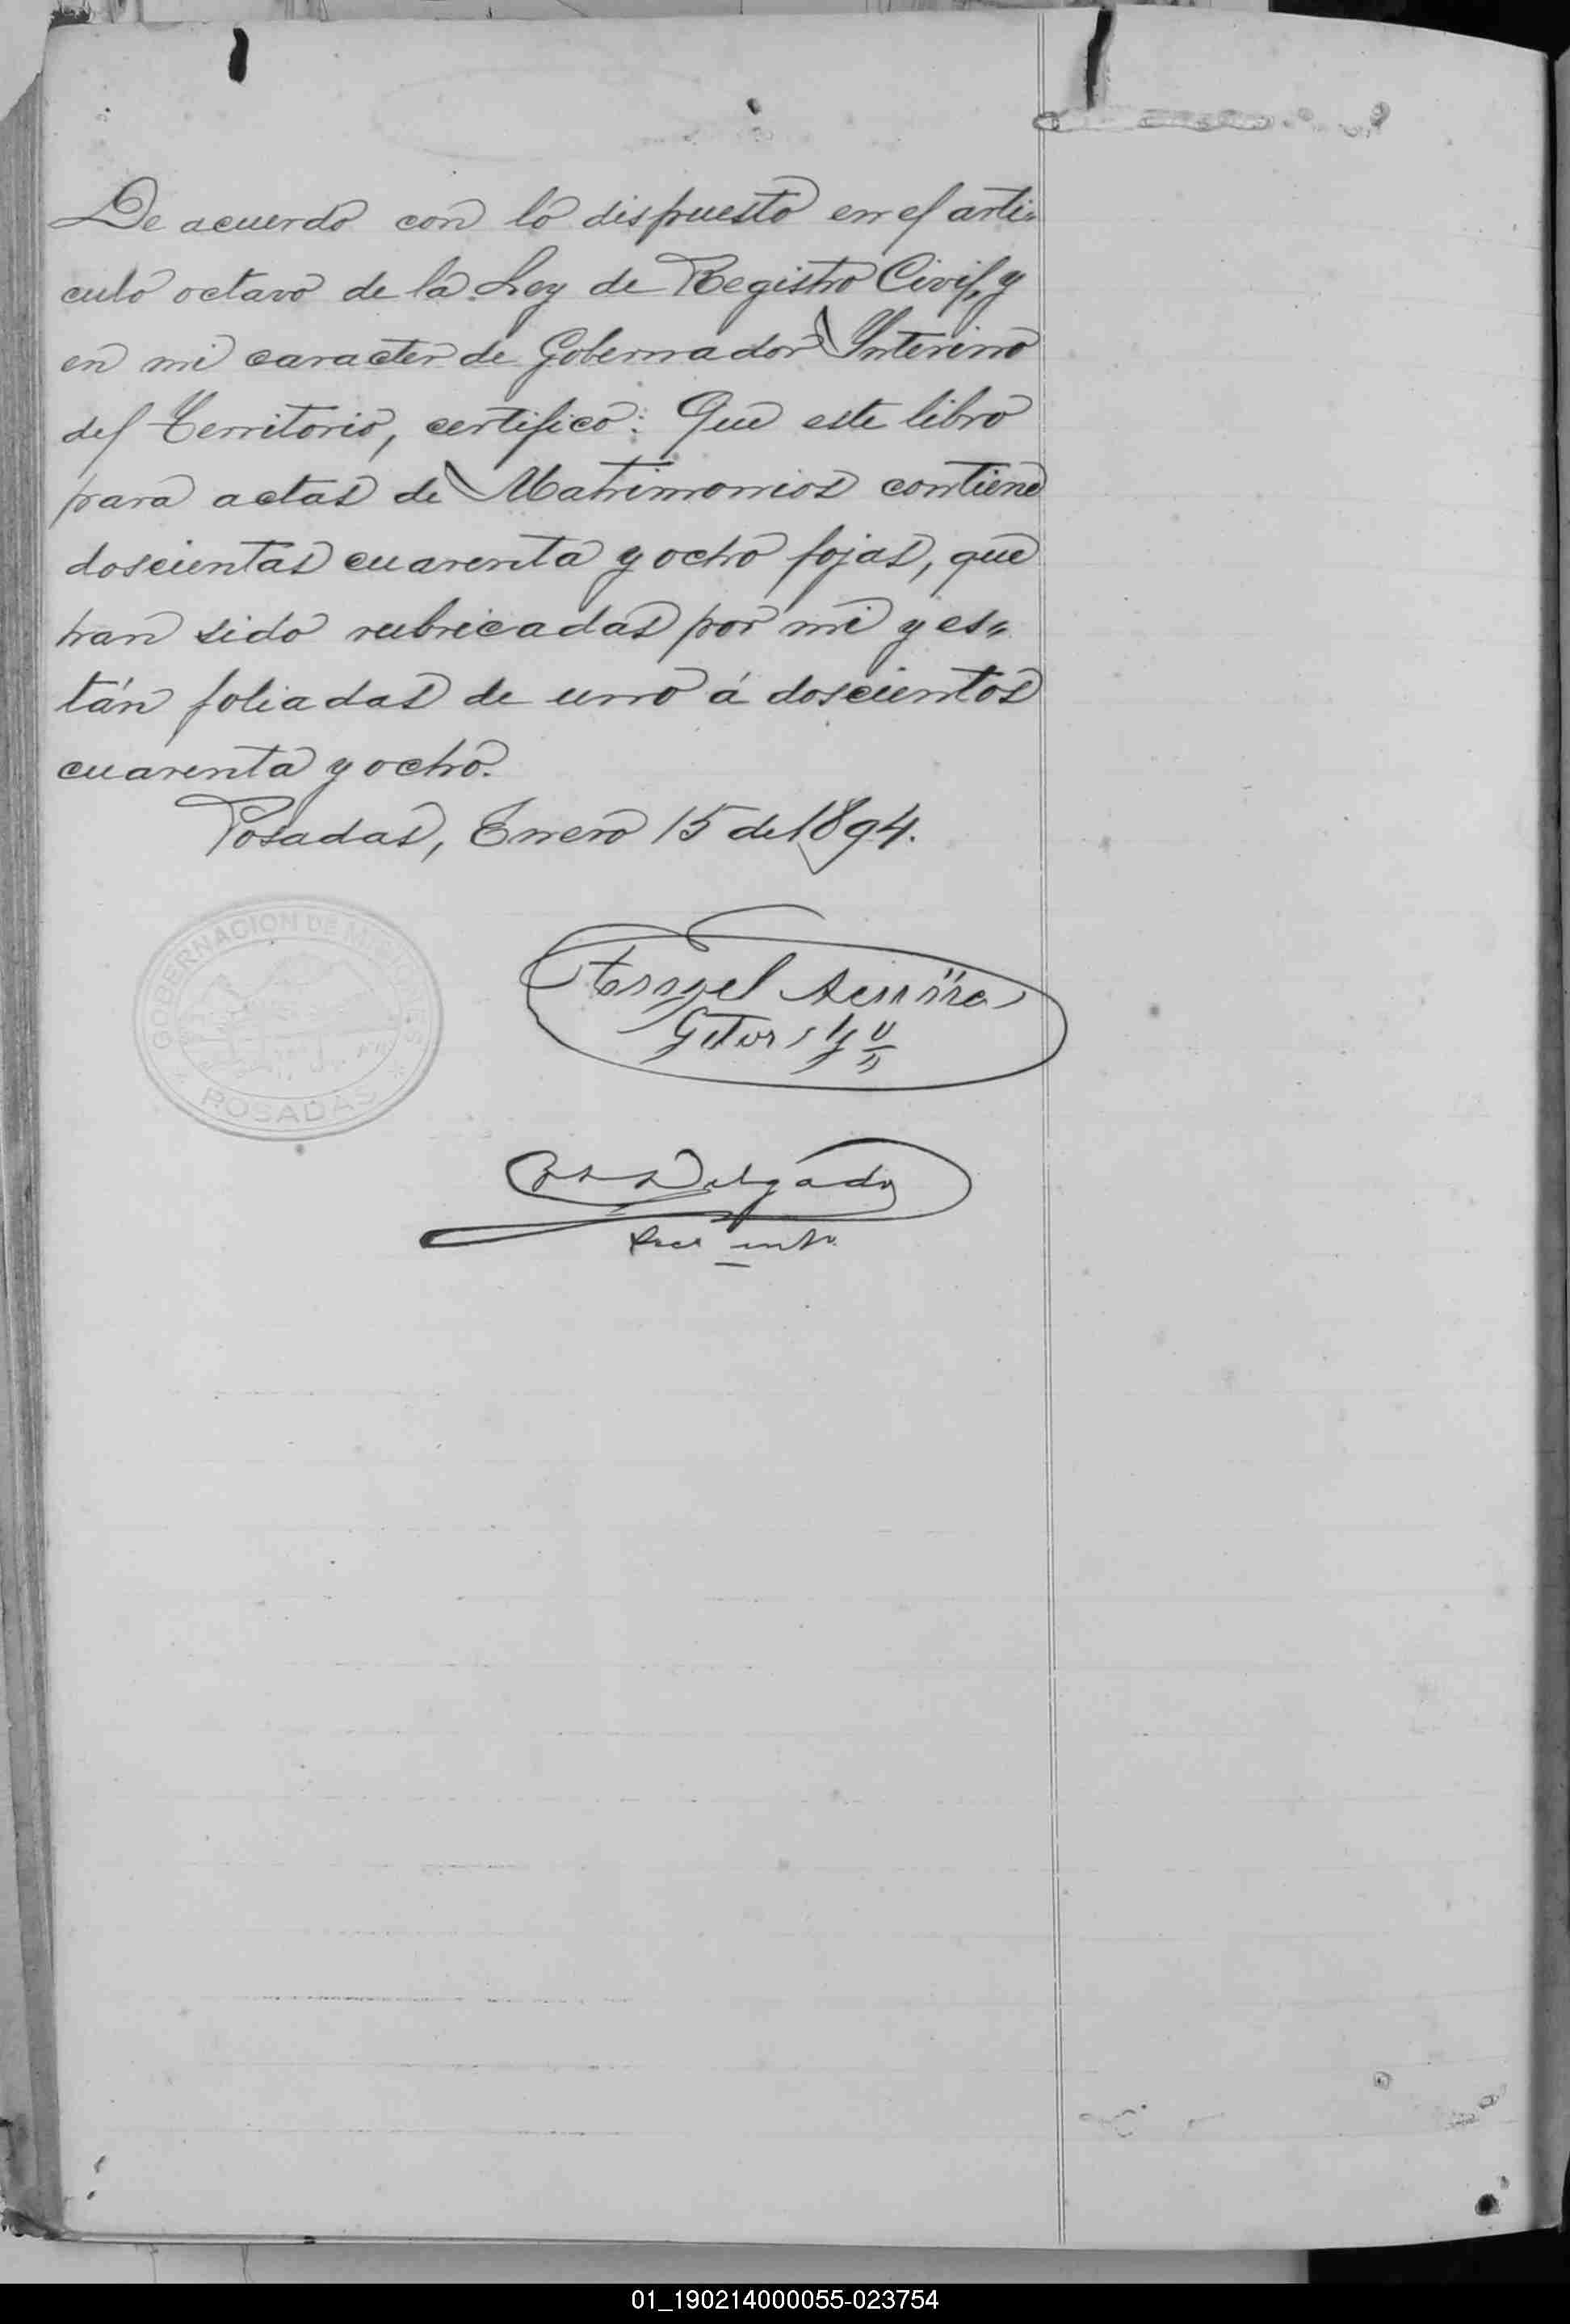 De acuerdo con lo dispuesto en el arti-
culo octavo de la Ley de Registro Civil, y
en mi caracter de Gobernador Interino
del Territorio, certifico: Que este libro
para actas de Matrimonios contiene
doscientas cuarenta y ocho fojas, que
han sido rubricadas por mi y es-
tán foliadas de uno á doscientos
cuarenta y ocho.
Posadas, Enero 15 de 1894.
GOBERNACION DE MISIONES
* POSADAS *
Angel Acuña
Delgado
Sec. int.
01_190214000055-023754